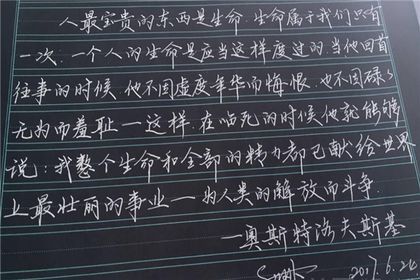 人最宝贵的东西是生命.生命属于我们只有
一次.一个人的生命是应当这样度过的.当他回首
往事的时候.他不因虚度年华而悔恨.也不因碌々
无为而羞耻—这样.在临死的时候他就能够
说:我整个生命和全部的精力都已献给世界
上最壮丽的事业—为人类的解放而斗争.
—奥斯特洛夫斯基
2017.6.26